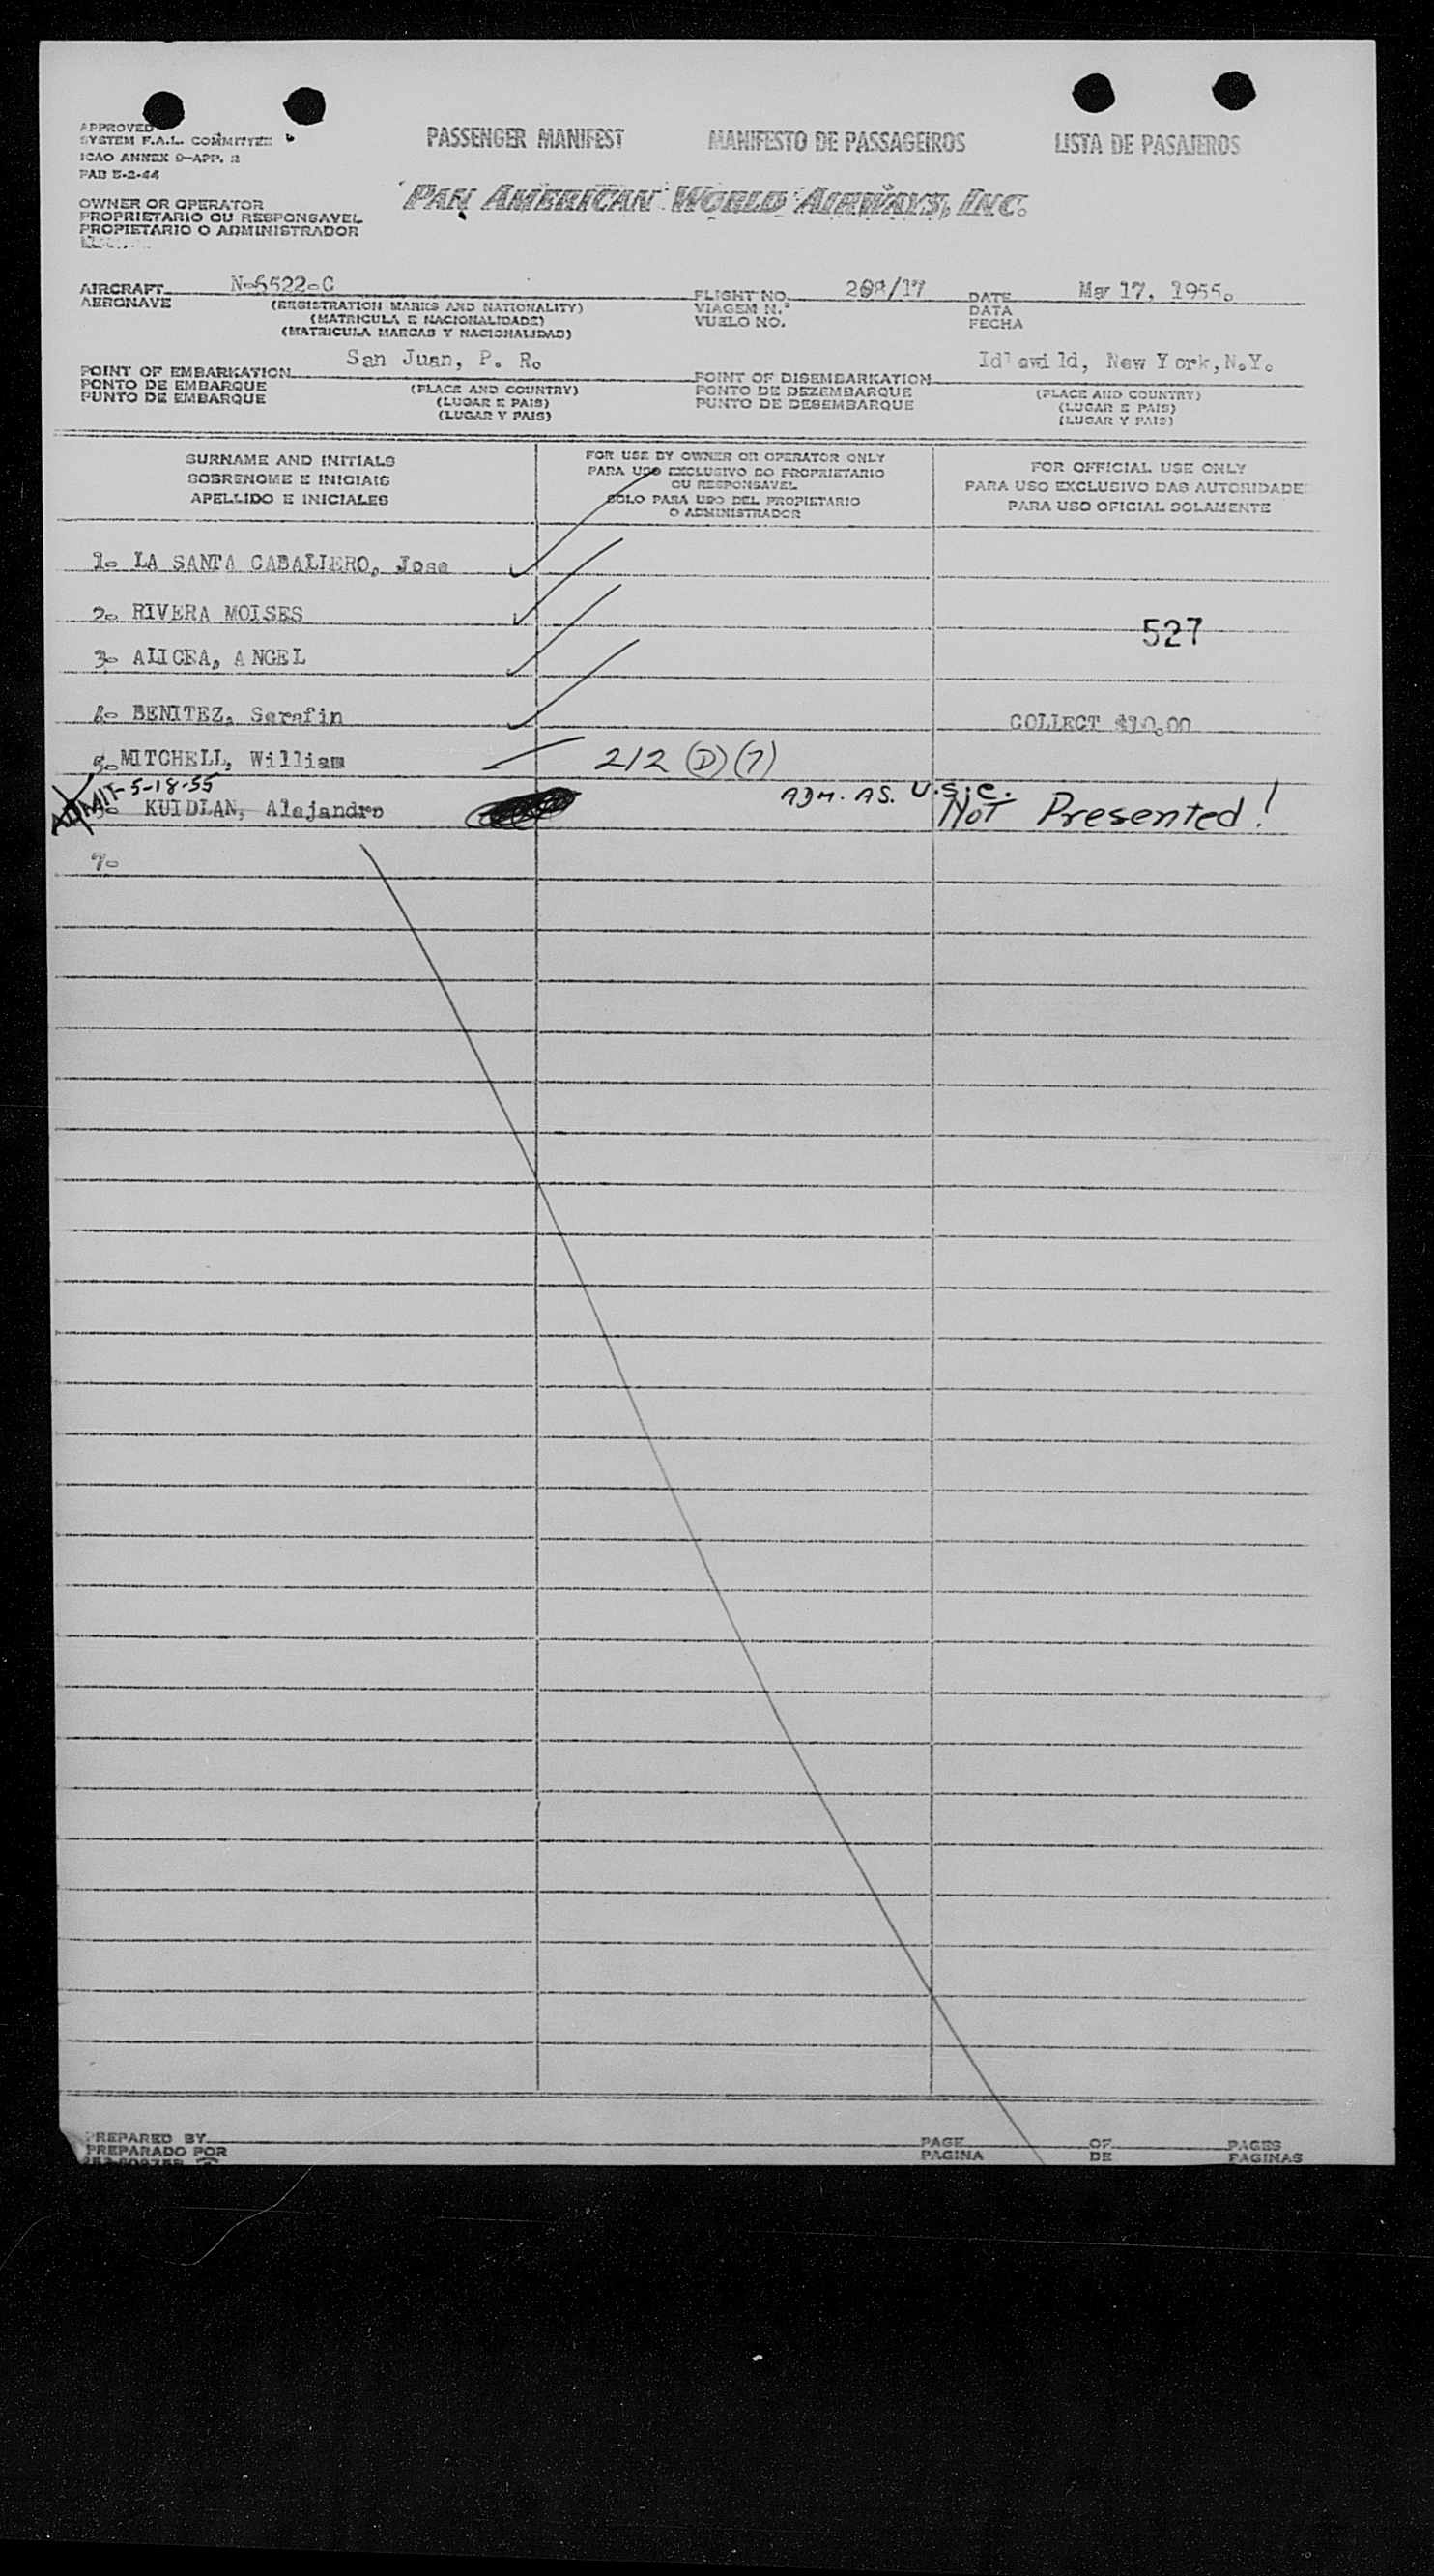 APPROVED
SYSTEM F.A.L. COMMITTEE
ICAO ANNEX 9-APP. 2
PAB 5-2-44
PASSENGER MANIFEST MANIFESTO DE PASSAGEIROS LISTA DE PASAJEROS
PAN AMERICAN WORLD AIRWAYS, INC.
OWNER OR OPERATOR
PROPRIETARIO OU RESPONSAVEL
PROPIETARIO O ADMINISTRADOR
AIRCRAFT N-6522-C FLIGHT NO. 208/17 DATE Mar 17, 1955.
AERONAVE (REGISTRATION MARKS AND NATIONALITY) VIAGEM N.º DATA
(MATRICULA E NACIONALIDADE) VUELO NO. FECHA
(MATRICULA MARCAS Y NACIONALIDAD)
POINT OF EMBARKATION San Juan, P. R. POINT OF DISEMBARKATION Idlewild, New York, N.Y.
PONTO DE EMBARQUE (PLACE AND COUNTRY) PONTO DE DEZEMBARQUE (PLACE AND COUNTRY)
PUNTO DE EMBARQUE (LUGAR E PAIS) PUNTO DE DESEMBARQUE (LUGAR E PAIS)
(LUGAR Y PAIS) (LUGAR Y PAIS)
SURNAME AND INITIALS
SOBRENOME E INICIAIS
APELLIDO E INICIALES
FOR USE BY OWNER OR OPERATOR ONLY
PARA USO EXCLUSIVO DO PROPRIETARIO
OU RESPONSAVEL
SOLO PARA USO DEL PROPIETARIO
O ADMINISTRADOR
FOR OFFICIAL USE ONLY
PARA USO EXCLUSIVO DAS AUTORIDADE
PARA USO OFICIAL SOLAMENTE
1. LA SANTA CABALLERO, Jose
2. RIVERA MOISES
527
3. ALICEA, ANGEL
4. BENITEZ, Serafin COLLECT $10.00
5. MITCHELL, William 212 (D)(7)
ADMIT 5-18-55 ADM. AS. U.S.C.
KUIDLAN, Alejandro NOT Presented!
7.
PREPARED BY PAGE OF PAGES
PREPARADO POR PAGINA DE PAGINAS